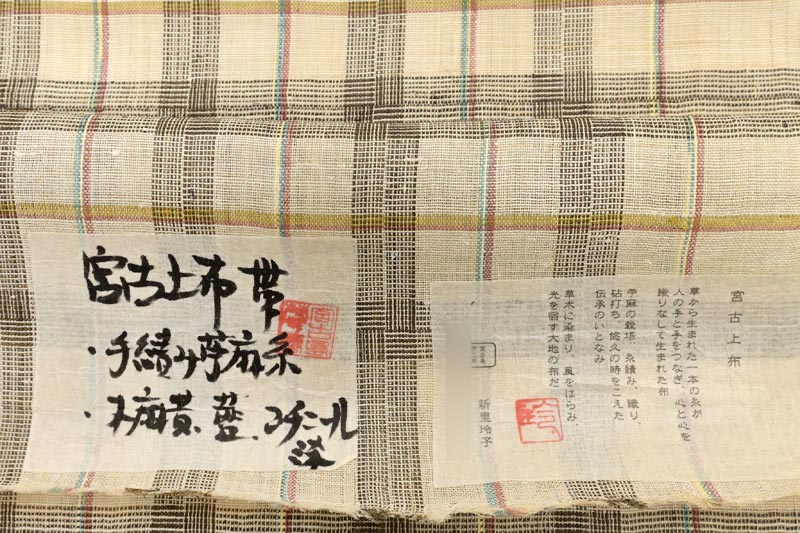 宮古上布帯
・手績み苧麻糸
・木麻黄、藍、コチニール
染
宮古上布
草から生まれた一本の糸が
人の手と手をつなぎ、心と心を
織りなして生まれた布
苧麻の栽培、糸績み、織り、
砧打ち、悠久の時をこえた
伝承のいとなみ
草木に染まり、風をはらみ、
光を宿す大地の布だ
新里玲子
玲